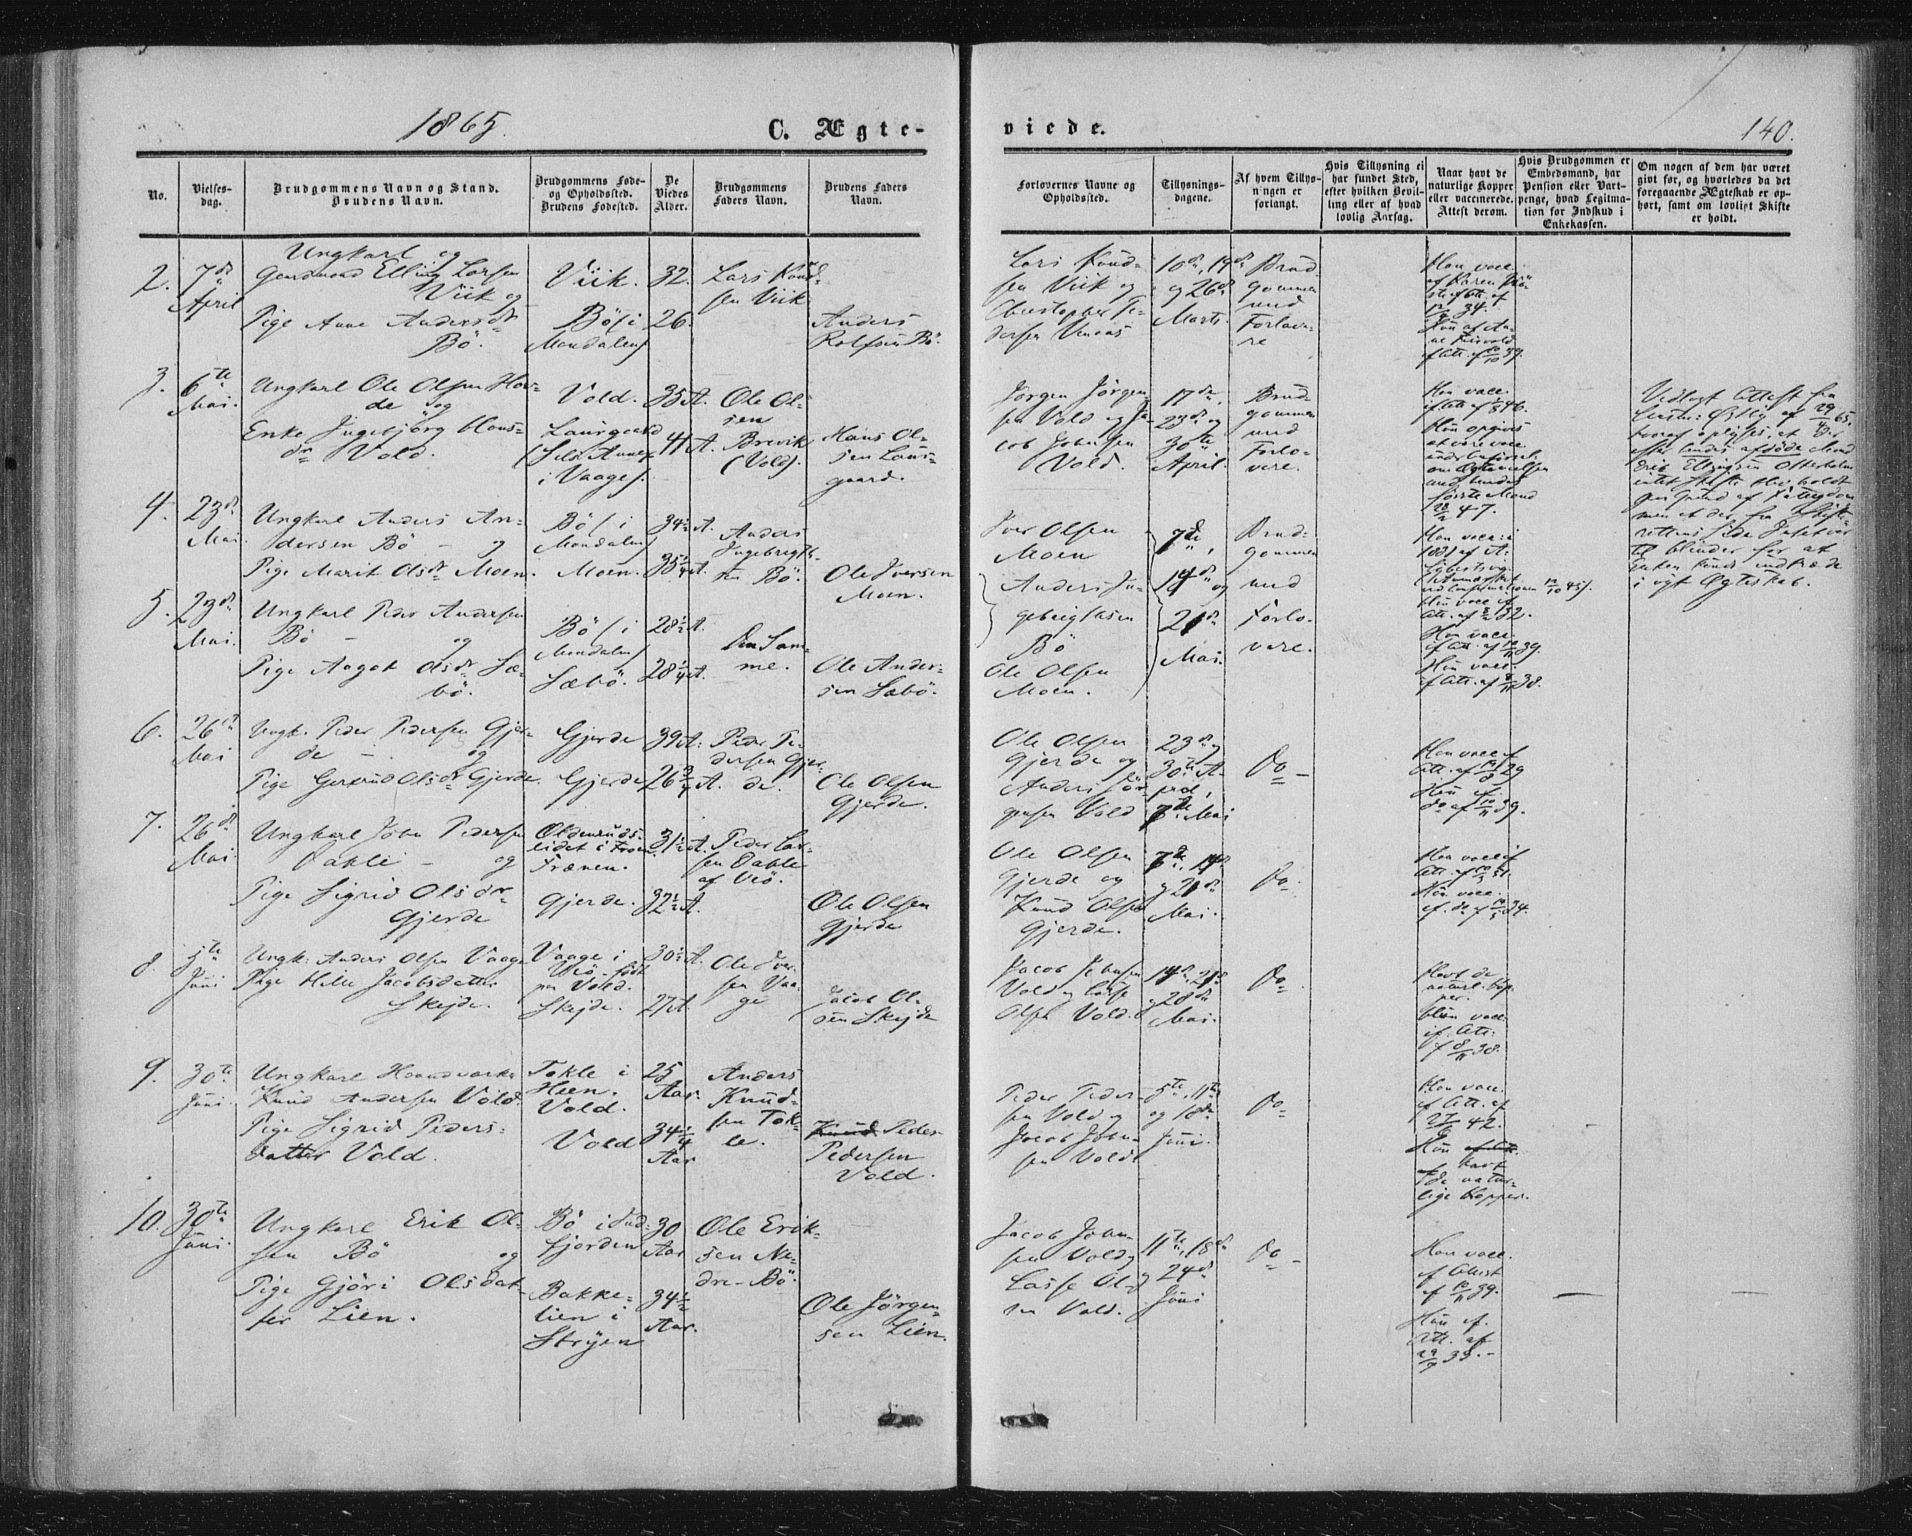 1865.
C. Ægte-
viede.
140.
No.
Vielses-
dag.
Brudgommens Navn og Stand.
Brudens Navn.
Brudgommens Føde-
og Opholdssted.
Brudens Fødested.
De
Viedes
Alder.
Brudgommens
Faders Navn.
Brudens Faders
Navn.
Forlovernes Navne og
Opholdssted.
Tillysnings-
dagene.
Af hvem Tillys-
ningen er
forlangt.
Hvis Tillysning ei
har fundet Sted,
efter hvilken Bevil-
ling eller af hvad
lovlig Aarsag.
Naar havt de
naturlige Kopper
eller vaccinerede.
Attest derom.
Hvis Brudgommen er
Embedsmand, har
Pension eller Vart-
penge, hvad Legitima-
tion for Indskud i
Enkekassen.
Om nogen af dem har været
givt før, og hvorledes da det
foregaaende Ægteskab er op-
hørt, samt om lovligt Skifte
er holdt.
2.
7de
April
Ungkarl og
Gaardmand Elling Larsen
Viik og
Pige Anne Andersdr
Bö.
Viik.
Bö i
Mandalen
32.
26.
Lars Knud-
sen Viik
Anders
Rolfsen Bö.
Lars Knud-
sen Viik og
Christopher Pe-
dersen
10de, 19de
og 26de
Marts.
Brud-
gommen
med
Forlove-
re
Han vacc.
3.
6te
Mai.
Ungkarl Ole Olsen Hov-
de og
Enke Ingebjörg Hans-
dr Vold.
Vold.
i Vaage
35 A.
41 A.
Ole Ol-
sen
Brevik
(Vold).
Hans Ol-
sen
gaard.
Jörgen Jörgen-
sen Vold og Ja-
cob Johnsen
Vold.
17de,
23de og
30te
April.
Brud-
gommen
med
Forlo-
vere.
Han vacc.
46.
Hun opgives
at være vacc.
47.
Vedlagt Attest fra
intet Skifte blev holdt
paa Grund af Fattigdom
men at der fra Skifte-
rettens Side Intet var
til Hinder for at
Enken kunde indtræde
i nyt Ægteskab.
4.
23de
Mai
Ungkarl Anders An-
dersen Bö - og
Pige Marit Olsdr Moen.
Bö i
Mandalen
Moen.
34½ A.
35¼ A.
Anders
Ingebrigt-
sen Bö.
Ole Iversen
Moen.
Iver Olsen
Moen
Anders In-
gebrigtsen
Bö
Ole Olsen
Moen.
7de,
14de og
21de
Mai.
Brud-
gommen
med
Forlo-
vere.
5.
23de
Mai.
Ungkarl Peder Andersen
Bö - og
Pige Aagot Olsdr Sæ-
bö.
Bö i
Mandalen
Sæbö.
28½ A.
28¼ A.
Den Sam-
me.
Ole Ander-
sen Sæbö.
Han vacc.
if Att. af 39.
Hun vacc.
if Att. af 38.
6.
26de
Mai
Ungk. Peder Pedersen Gjer-
de - og
Pige Gertrud Olsdr Gjerde.
Gjerde
Gjerde
39 A.
26¾ A.
Peder Pe-
dersen Gjer-
de.
Ole Olsen
Gjerde.
Ole Olsen
Gjerde og
Anders Jör-
gensen Vold
23de og
30te A-
pril,
7de Mai
Do -
Han vacc if
Att. af 29
Hun if.
do af 39.
7.
26de
Mai.
Ungkarl John Pedersen
Dahle - og
Pige Sigrid Olsdr
Gjerde
Frænen.
Gjerde.
31½ A.
32½ A.
Peder Lar-
sen Dahle
af Veö.
Ole Olsen
Gjerde
Ole Olsen
Gjerde og
Knud Olsen
Gjerde.
7de, 14de
og 21de
Mai.
Do.
Han vacc if
Hun vacc.
if. do af 34.
8.
5te
Juni
Ungk. Anders Olsen Vaage
Pige Helle Jacobsdatter
Skejde.
Vaage i
Veö - födt
paa Vold.
Skejde.
30½ A.
27 A.
Ole Iver-
sen Vaa-
ge
Jacob Ol-
sen Skejde
Jacob Johnsen
Vold og Lasse
Olsen Vold.
14de, 21de
og 28de
Mai.
Do
Havt de
naturl. Kop-
per.
Hun vacc.
if. Att.
af 8/11 38.
9.
30te
Juni
Ungkarl Haandværker
Knud Andersen Vold
Pige Sigrid Peders-
datter Vold.
Tokle i
Heen.
Vold.
Vold
25
Aar.
34¼
Aar
Anders
Knud-
sen Tok-
le.
Knud Peder
Pedersen
Vold.
Peder Peder-
sen Vold og
Jacob John-
sen Vold
5te, 11te
og 18de
Juni.
Do
Han vacc.
if Att. af
42.
Hun
havt
de natur-
lige Kopper.
10.
30te
Juni.
Ungkarl Erik Ol-
sen Bö og
Pige Gjöri Olsdat-
ter Lien.
Bö i Ind-
fjorden
Bakke-
lien i
Stryen
30
Aar
34½
Aar.
Ole Erik-
sen Ne-
dre-Bö.
Ole Jörgen-
sen Lien.
Jacob John-
sen Vold og
Lasse Ol-
sen Vold.
11te, 18de
og 24de
Juni
Do -
Han vacc.
if Attest
af 39.
Hun if.
Att. af
33.